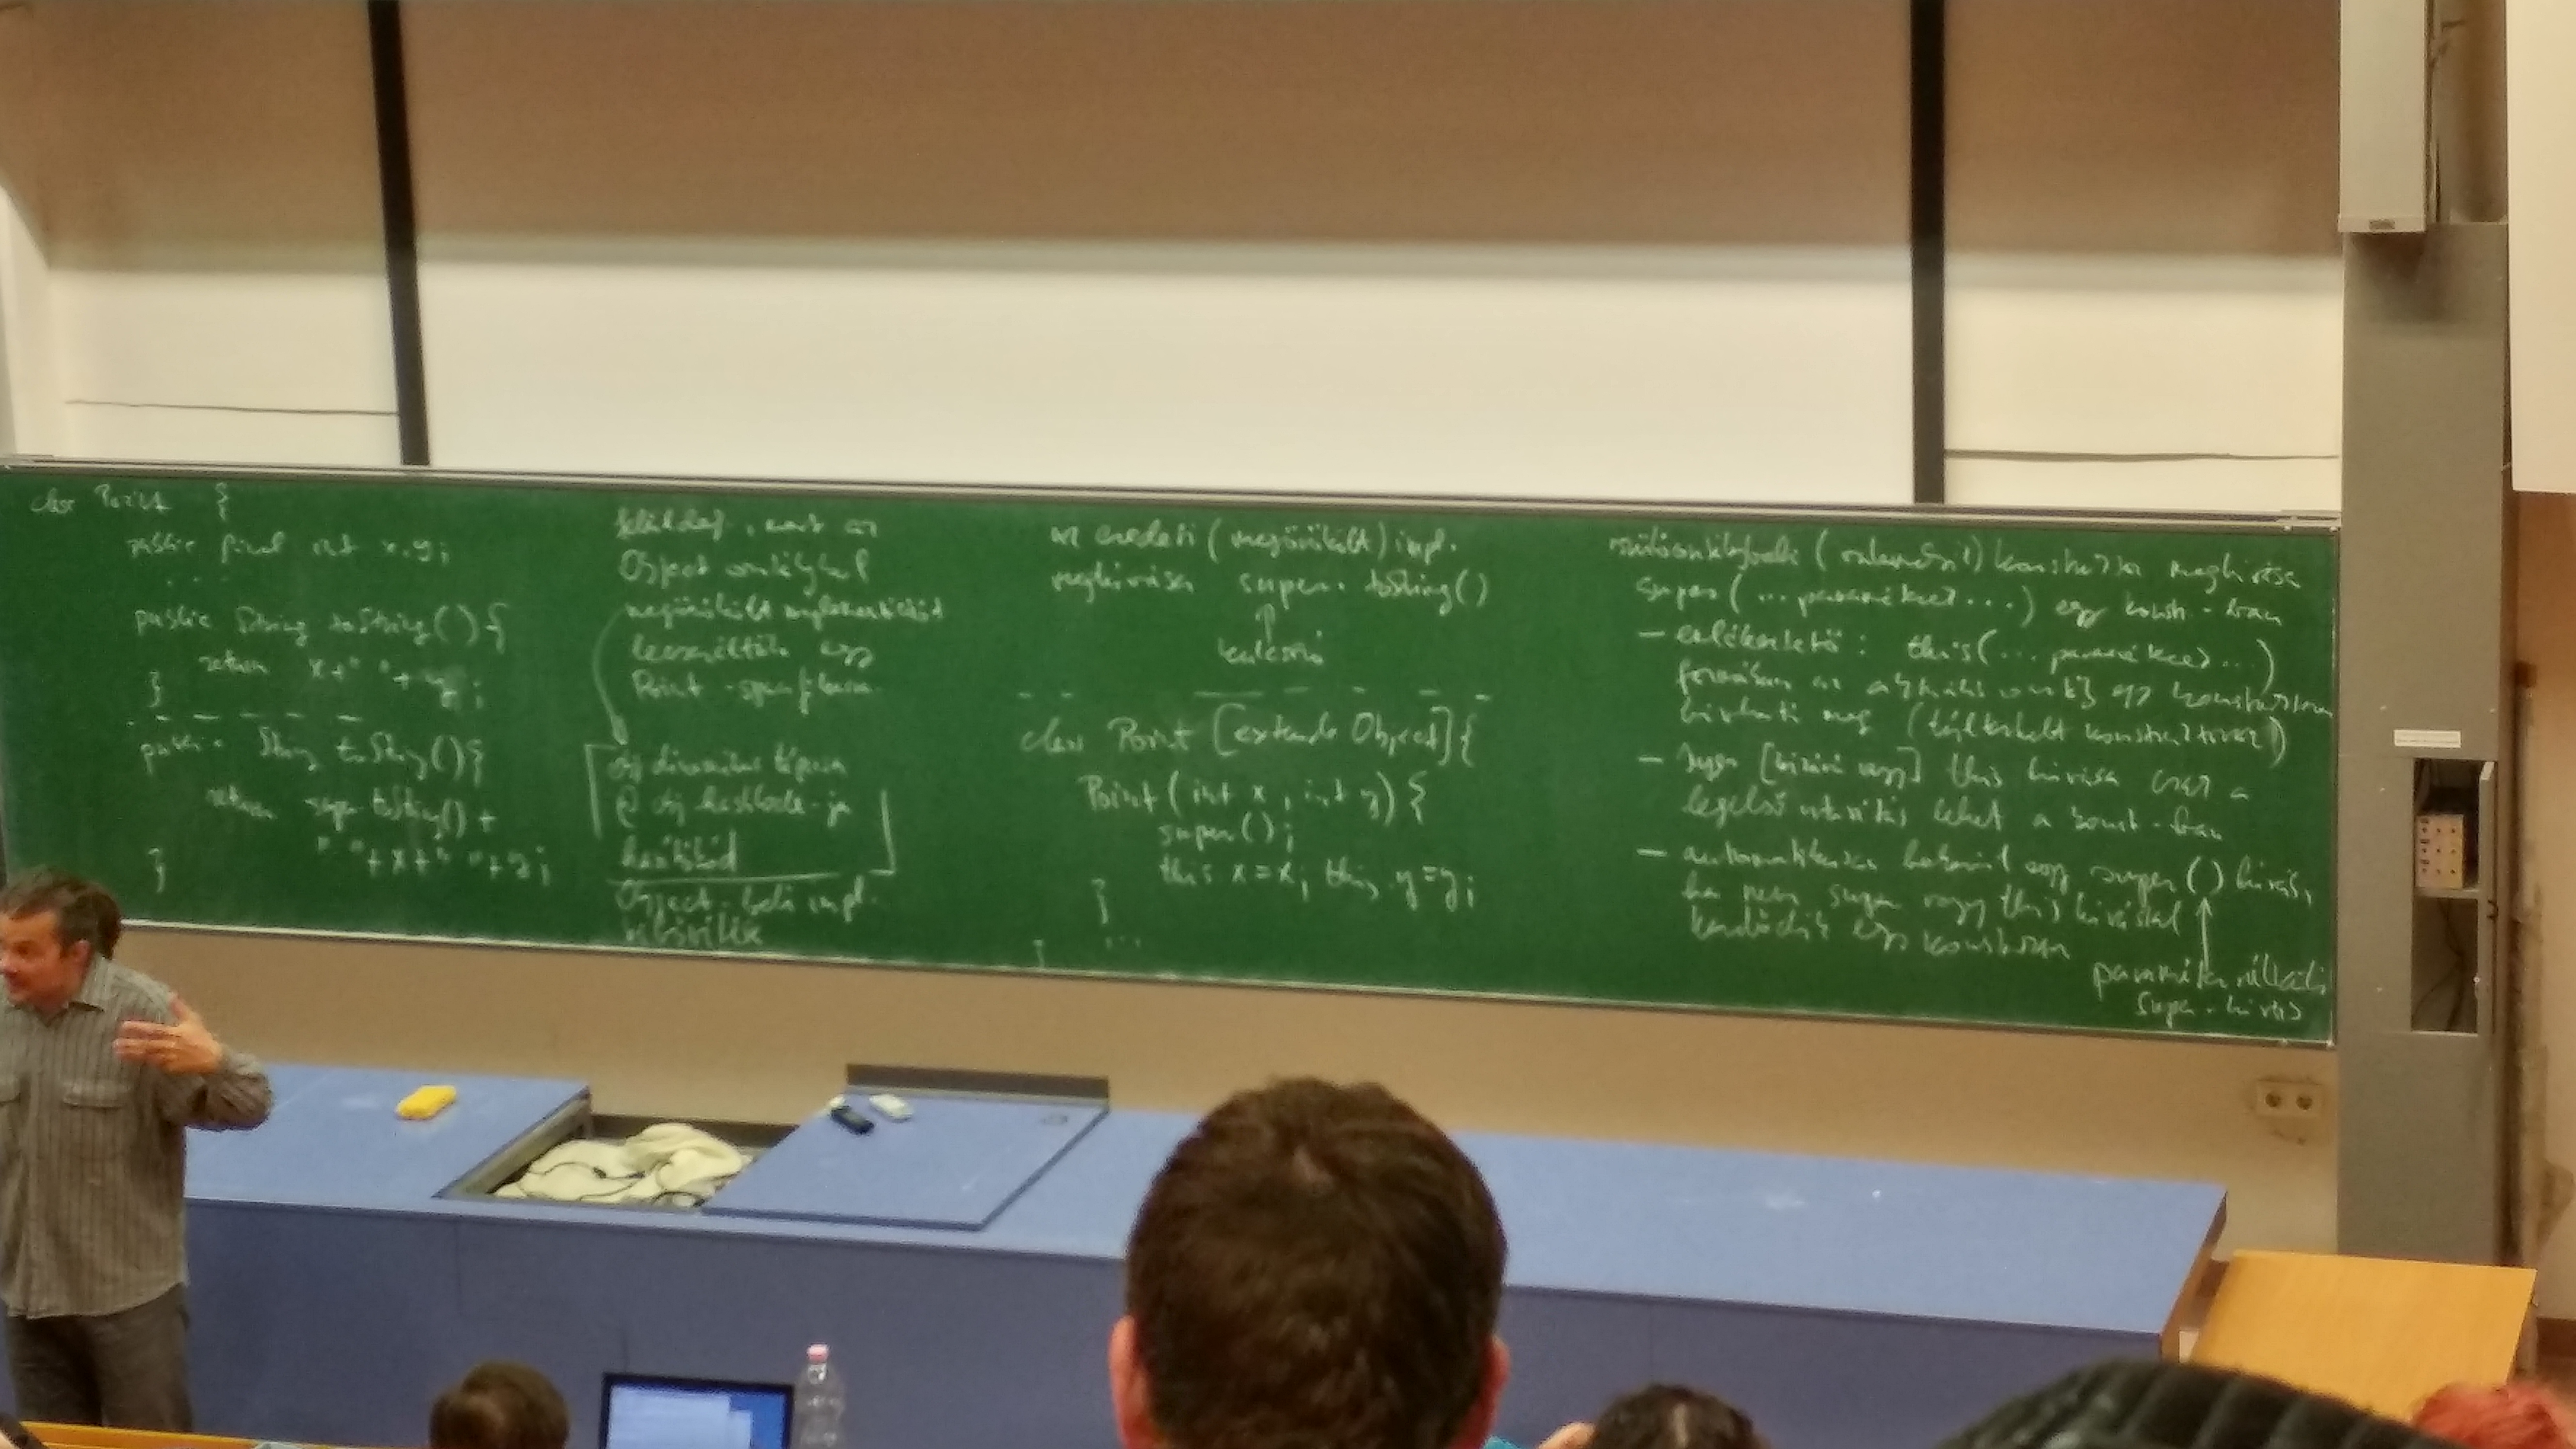 class Point {
public final int x, y;
...
public String toString() {
return x + " " + y;
}
public String toString() {
return super.toString() +
" " + x + " " + y;
}
felüldef., mert az
Object osztályból
megörökölt implementációt
lecseréltük egy
Point
új dinamikus típusa
@ obj hashCode-ja
hasítókód
Object-beli impl.
az eredeti (megörökölt) impl.
meghívása super.toString()
↑
kulcsszó
class Point [extends Object] {
Point (int x, int y) {
super();
this.x = x; this.y = y;
}
...
}
szülőosztálybeli konstruktor meghívása
super (... paraméterek ...) egy konstr-ban
- emlékeztető: this (... paraméterek ...)
formában az aktuális oszt. egy konstruktora
hívható meg (túlterhelt konstruktorral)
- super [bizony vagy] this hívása csak a
legelső utasítás lehet a konst-ban
- automatikusan bekerül egy super () hívás,
ha nem super vagy this hívással
kezdődik egy konstruktor
paraméter nélküli
super-hívás